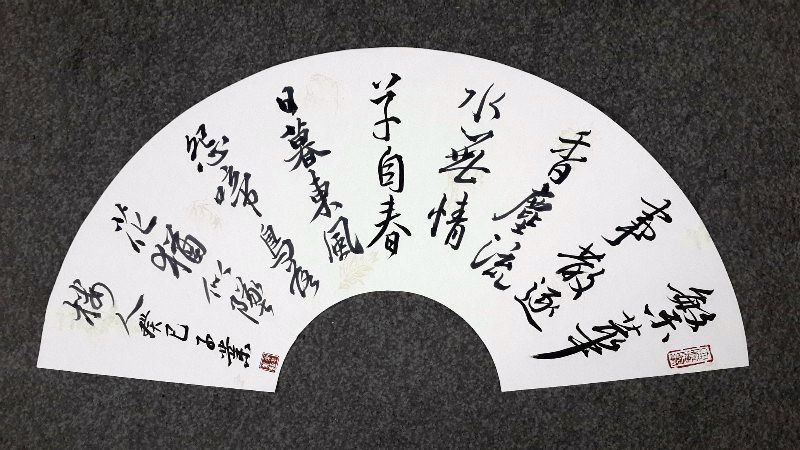 繁華
事散逐
香塵流
水無情
草自春
日暮東風
怨啼鳥落
花猶似墜
樓人
癸巳子業